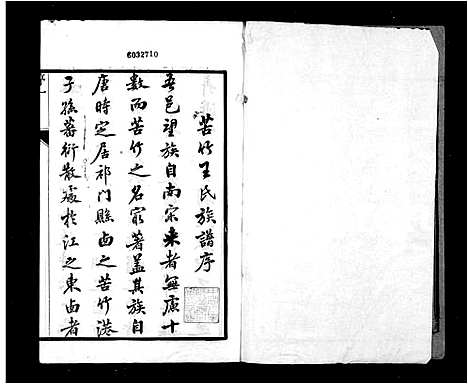 6032710
苦竹王氏族譜序
吾邑望族自南宋来者無慮十
数而苦竹之名最著盖其族自
唐時定居祁门縣西之苦竹港
子孫蕃衍散處於江之東西者